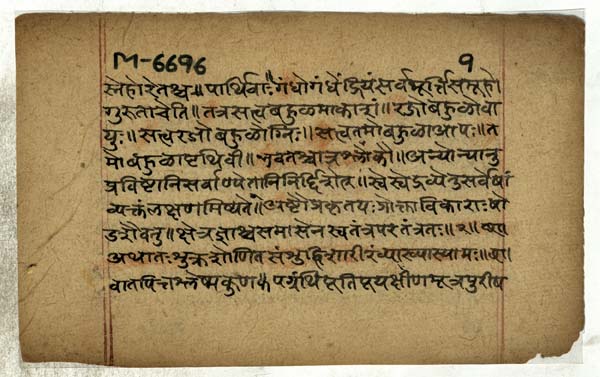 M-6696 १
स्नेहोरेतश्च॥पार्थिवाः॥गंधोगंधेंद्रियंसर्वमूर्त्तिसमूहो
गुरुताचेति॥तत्रसत्वबहुळमाकाशं॥रजोबहुळोवा
युः॥सत्वरजोबहुळोग्निः॥सत्वतमोबहुळाआपः॥त
मोबहुळापृथिवी॥भवतश्चात्रश्लोकौ॥अन्योन्यानु
प्रविष्टानिसर्वाण्येतानिनिर्द्दिशेत्॥स्वेस्वेद्रव्येतुसर्वेषां
व्यक्तंलक्षणमिष्यते॥अष्टौप्रकृतयःप्रोक्ताविकाराःषो
डशैवतु॥क्षेत्रज्ञश्चसमासेनस्वतंत्रपरतंत्रतः॥१॥
अथातःशुक्रशोणितसंशुद्धिशारीरंव्याख्यास्यामः॥
वातपित्तश्लेष्मकुणपग्रंथिपूतिपूयक्षीणमूत्रपुरीष